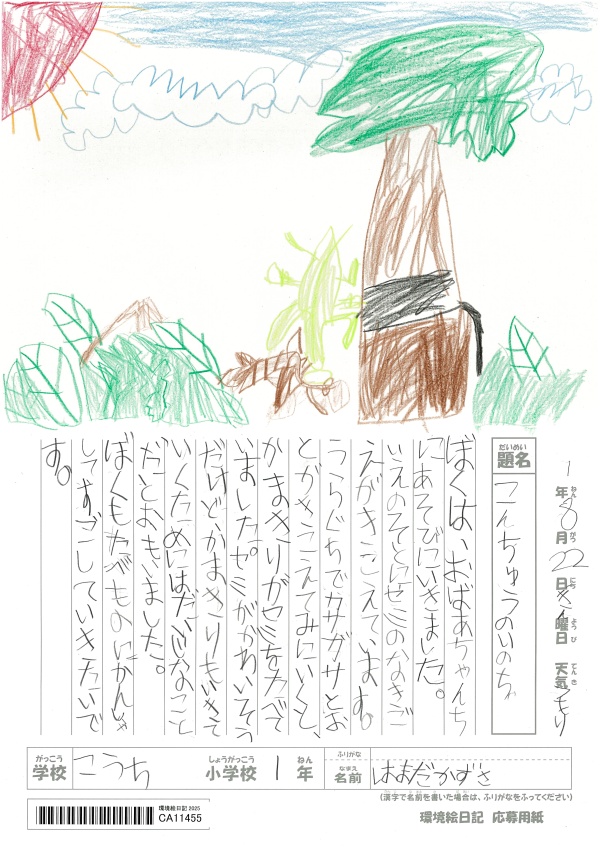 1年8月22日きん曜日 天気くもり
ねん がつ にち ようび てんき
だいめい
題名 こんちゅうのいのち
ぼくは、おばあちゃんち
にあそびにいきました。
いえのそとにセミのなきご
えがきこえています。
うらぐちでカサガサとお
とがきこえてみにいくと、
かまきりがセミをたべて
いました。セミがかわいそう
だけど、かまきりもいきて
いくためにはだいじなこと
だとおもいました。
ぼくもたべものにかんしゃ
してすごしていきたいで
す。
がっこう しょうがっこう ねん ふりがな なまえ
学校 こうち 小学校 1年 名前 はまだかずさ
(漢字で名前を書いた場合は、ふりがなをふってください)
環境絵日記 2025
CA11455
環境絵日記 応募用紙